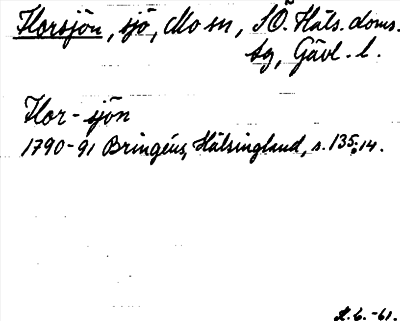 Florsjön, sjö, Mo sn, SÖ. Häls. doms.
sg, Gävl. l.
Flor-sjön
1790-91 Bringéus, Hälsingland, s. 135:14.
S.C. -61.